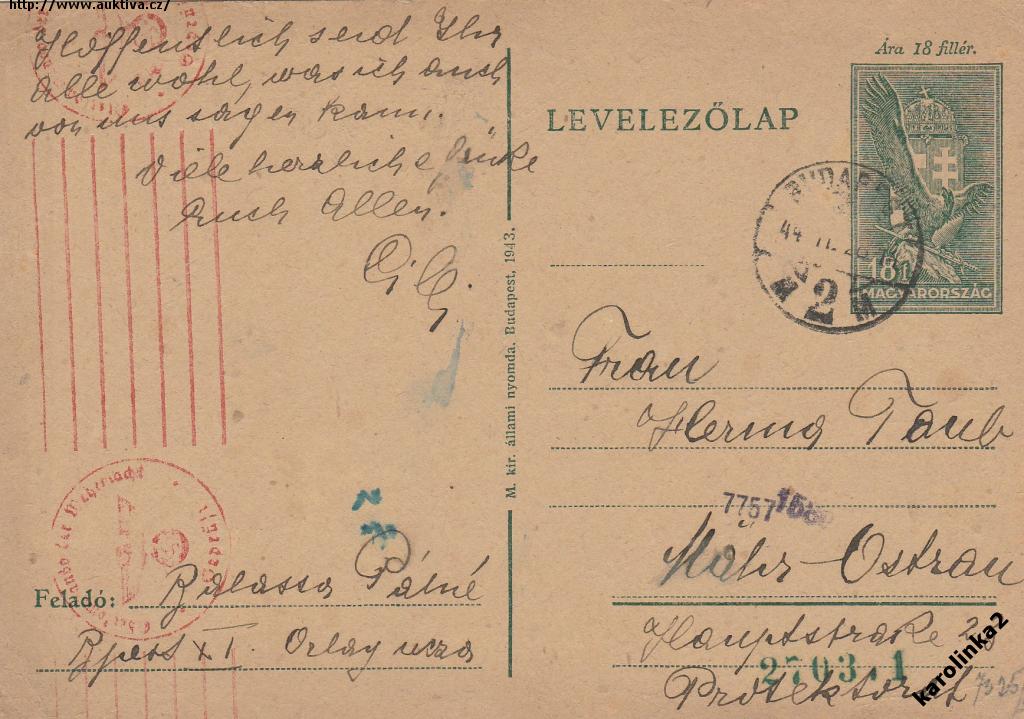 http://www.auktiva.cz/
Hoffentlich seid Ihr
alle wohl, was ich auch
von uns sagen kann.
Viele herzliche Grüße
Euch Allen.
Cilly
Feladó: Balassa Pálné
Bpest XI. Orlay ucza
M. kir. állami nyomda. Budapest, 1943.
Ára 18 fillér.
LEVELEZŐLAP
18f
MAGYARORSZÁG
BUDAPEST
2
Frau
Herma Taub
7757
Mähr-Ostrau
Hauptstraße
2703.1
Protektorat
karolinka2